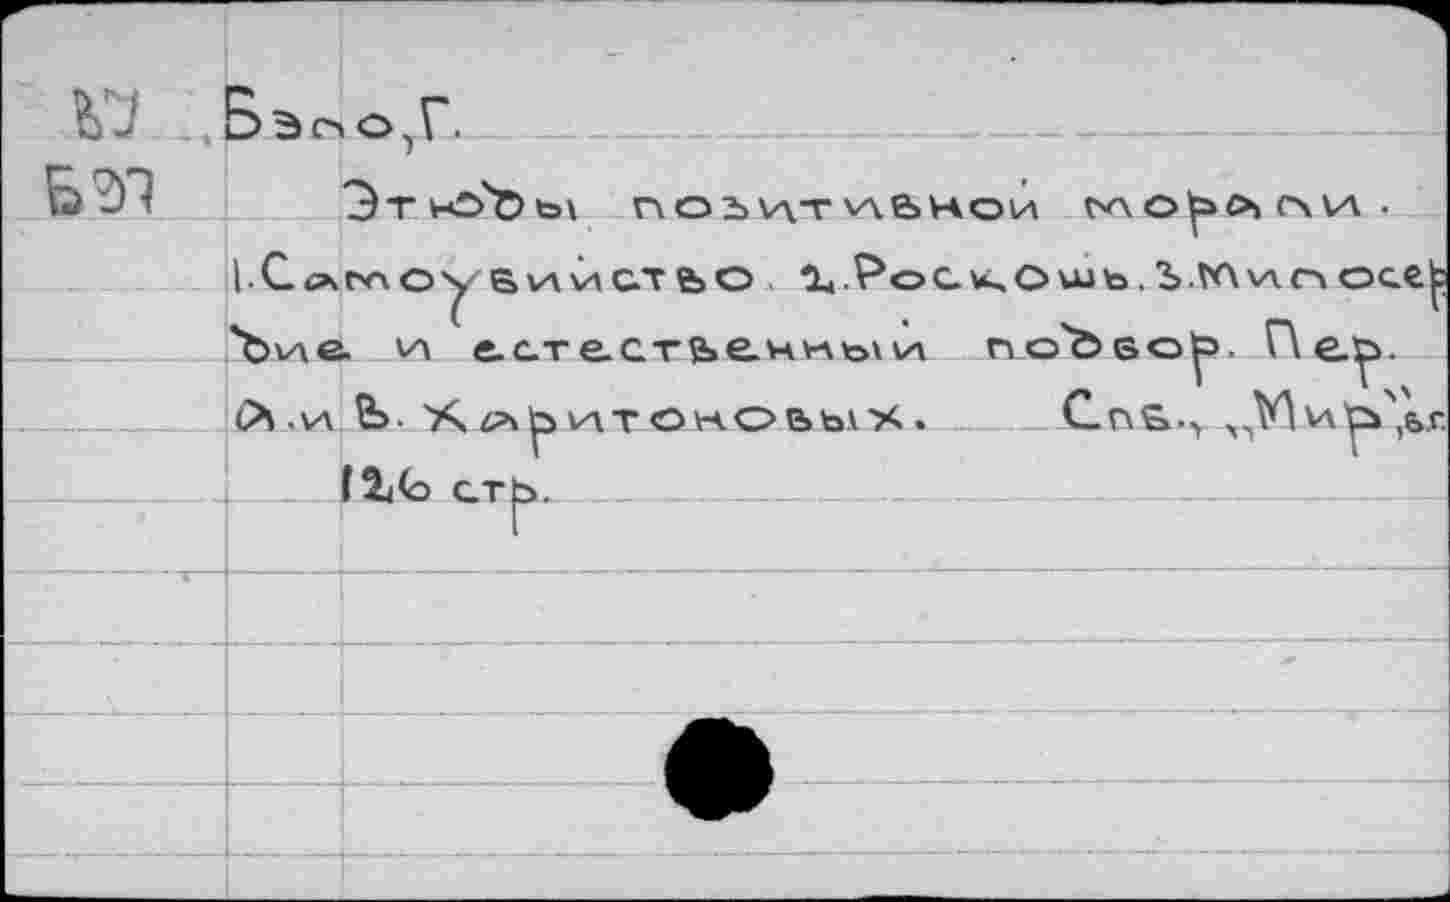 Бэло, Г.
БЭЛ
Этюды позитивной морали.
1. Самоубийство. 2. Роскошь. 3. Милосер
дие и естественный подбор. Пер.
А. и В. Харитоновых. Спб., „Мир", б.г.
126 стр.